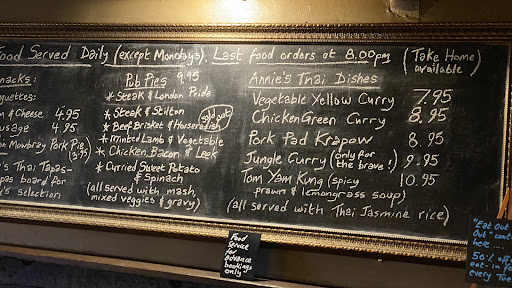 Food Served Daily (except Mondays). Last food orders at 8.00pm (Take Home available)
nacks:
guettes:
m & Cheese 4.95
usage 4.95
on Mowbray Pork Pie (3.95)
's Thai Tapas-
pas board for
y's selection
Pub Pies 9.95
* Steak & London Pride
* Steak & Stilton
* Beef Brisket & Horseradish
sold out
* Minted Lamb & Vegetable
* Chicken, Bacon & Leek
* Curried Sweet Potato
& Spinach
(all served with mash,
mixed veggies & gravy)
Annie's Thai Dishes
Vegetable Yellow Curry 7.95
Chicken Green Curry 8.95
Pork Pad Krapow 8.95
Jungle Curry (only for the brave!) 9.95
Tom Yam Kung (spicy 10.95
prawn & lemongrass soup)
(all served with Thai Jasmine rice)
Food
Service
for
advance
bookings
only
"Eat Out
Out"
here ....
50% off
eat-in
every Tue